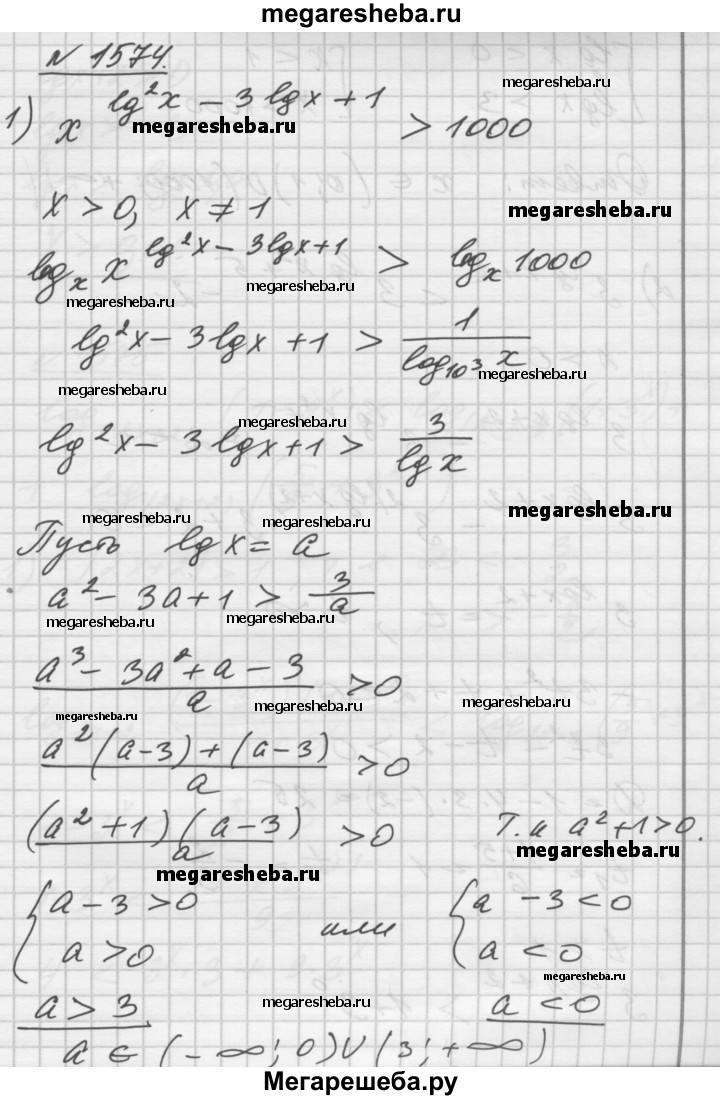 megaresheba.ru
N 1574.
1) x^(lg²x - 3lgx + 1) > 1000
megaresheba.ru
megaresheba.ru
x > 0, x ≠ 1
megaresheba.ru
log_x x^(lg²x - 3lgx + 1) > log_x 1000
megaresheba.ru
megaresheba.ru
lg²x - 3lgx + 1 > 1/(log_(10³) x)
megaresheba.ru
megaresheba.ru
megaresheba.ru
lg²x - 3lgx + 1 > 3/(lg x)
megaresheba.ru
megaresheba.ru
megaresheba.ru
Пусть lgx = a
a² - 3a + 1 > 3/a
megaresheba.ru
megaresheba.ru
(a³ - 3a² + a - 3)/a > 0
megaresheba.ru
megaresheba.ru
megaresheba.ru
(a²(a-3) + (a-3))/a > 0
((a² + 1)(a - 3))/a > 0 Т.к a² + 1 > 0.
megaresheba.ru
megaresheba.ru
{ a - 3 > 0 или { a - 3 < 0
a > 0 a < 0
megaresheba.ru
megaresheba.ru
a > 3 a < 0
a ∈ (-∞; 0) ∪ (3; +∞)
Мегарешеба.ру